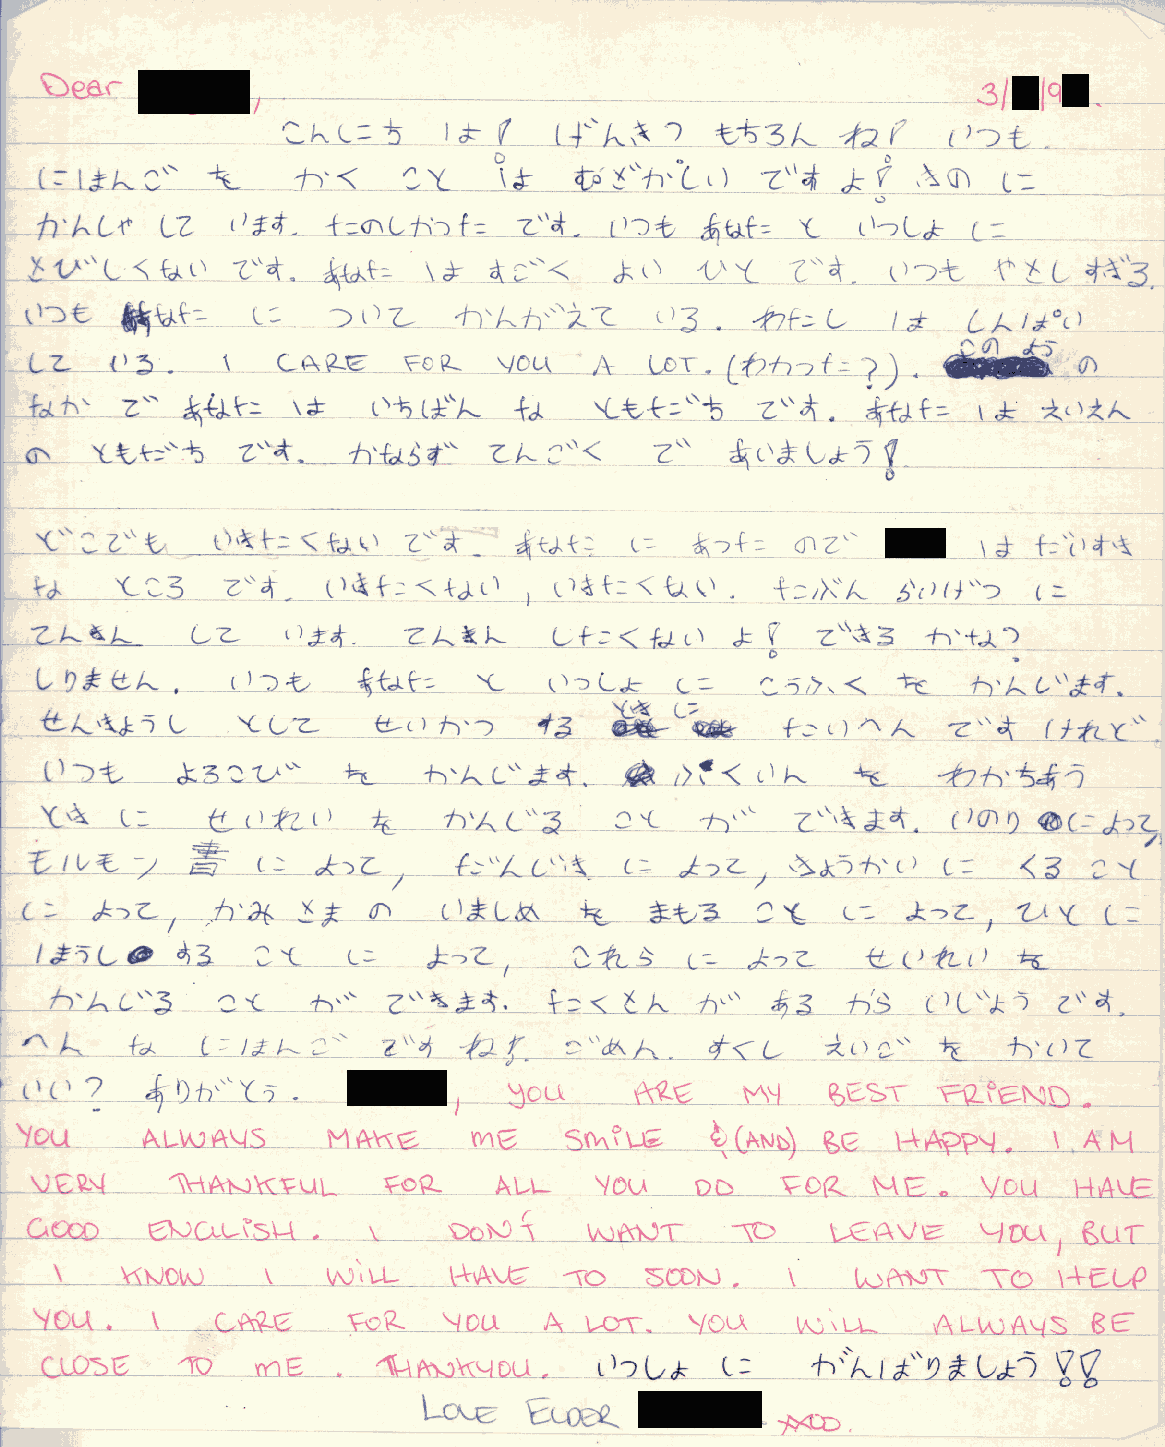 Dear , 3/ /9 .
こんにちは! げんき? もちろんね! いつも
にほんごを かくことは むずかしいですよ! きのに
かんしゃして います. たのしかったです. いつも あなたと いっしょに
さびしくないです. あなたは すごく よい ひとです. いつも やさしすぎる.
いつも あなたに ついて かんがえて いる. わたしは しんぱい
して いる. I CARE FOR YOU A LOT. (わかった?). このようの
なかで あなたは いちばんな ともだちです. あなたは えいえん
の ともだちです. かならず てんごくで あいましょう!
どこでも いきたくないです. あなたに あったので は だいすき
な ところです. いきたくない, いきたくない. たぶん らいげつに
てんきん して います. てんきん したくないよ! できるかな?
しりません. いつも あなたと いっしょに こうふくを かんじます.
せんきょうしとして せいかつ する ときに たいへんですけれど.
いつも よろこびを かんじます. ふくいんを わかちあう
ときに せいれいを かんじる ことが できます. いのりによって,
モルモン書に よって, だんじきに よって, きょうかいに くること
に よって, かみさまの いましめを まもることに よって, ひとに
ほうし する ことに よって, これらに よって せいれいを
かんじる ことが できます. たくさんが あるから いじょうです.
へんな にほんごですね! ごめん. すくし えいごを かいて
いい? ありがとう. , YOU ARE MY BEST FRIEND.
YOU ALWAYS MAKE ME SMILE & (AND) BE HAPPY. I AM
VERY THANKFUL FOR ALL YOU DO FOR ME. YOU HAVE
GOOD ENGLISH. I DON'T WANT TO LEAVE YOU, BUT
I KNOW I WILL HAVE TO SOON. I WANT TO HELP
YOU. I CARE FOR YOU A LOT. YOU WILL ALWAYS BE
CLOSE TO ME. THANKYOU. いっしょに がんばりましょう!!
LOVE ELDER XXOO.